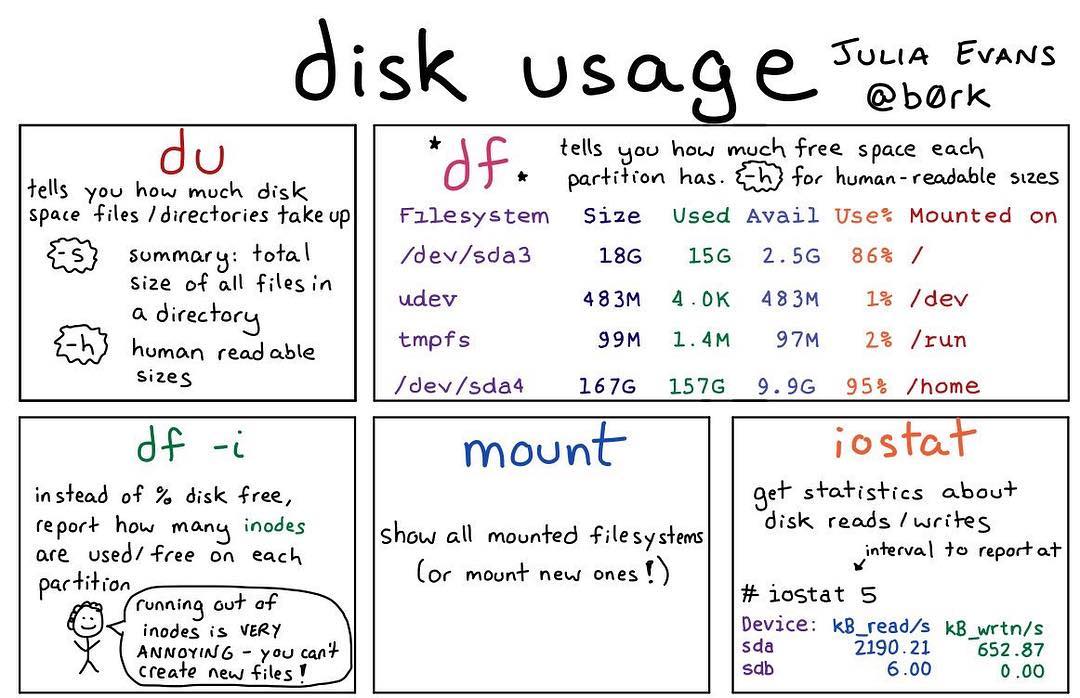 disk usage
JULIA EVANS
@børk
du
tells you how much disk
space files / directories take up
-s
summary: total
size of all files in
a directory
-h
human readable
sizes
*df*
tells you how much free space each
partition has. -h for human-readable sizes
Filesystem Size Used Avail Use% Mounted on
/dev/sda3 18G 15G 2.5G 86% /
udev 483M 4.0K 483M 1% /dev
tmpfs 99M 1.4M 97M 2% /run
/dev/sda4 167G 157G 9.9G 95% /home
df -i
instead of % disk free,
report how many inodes
are used/free on each
partition
running out of
inodes is VERY
ANNOYING - you can't
create new files!
mount
show all mounted filesystems
(or mount new ones!)
iostat
get statistics about
disk reads/writes
interval to report at
# iostat 5
Device: kB_read/s kB_wrtn/s
sda 2190.21 652.87
sdb 6.00 0.00